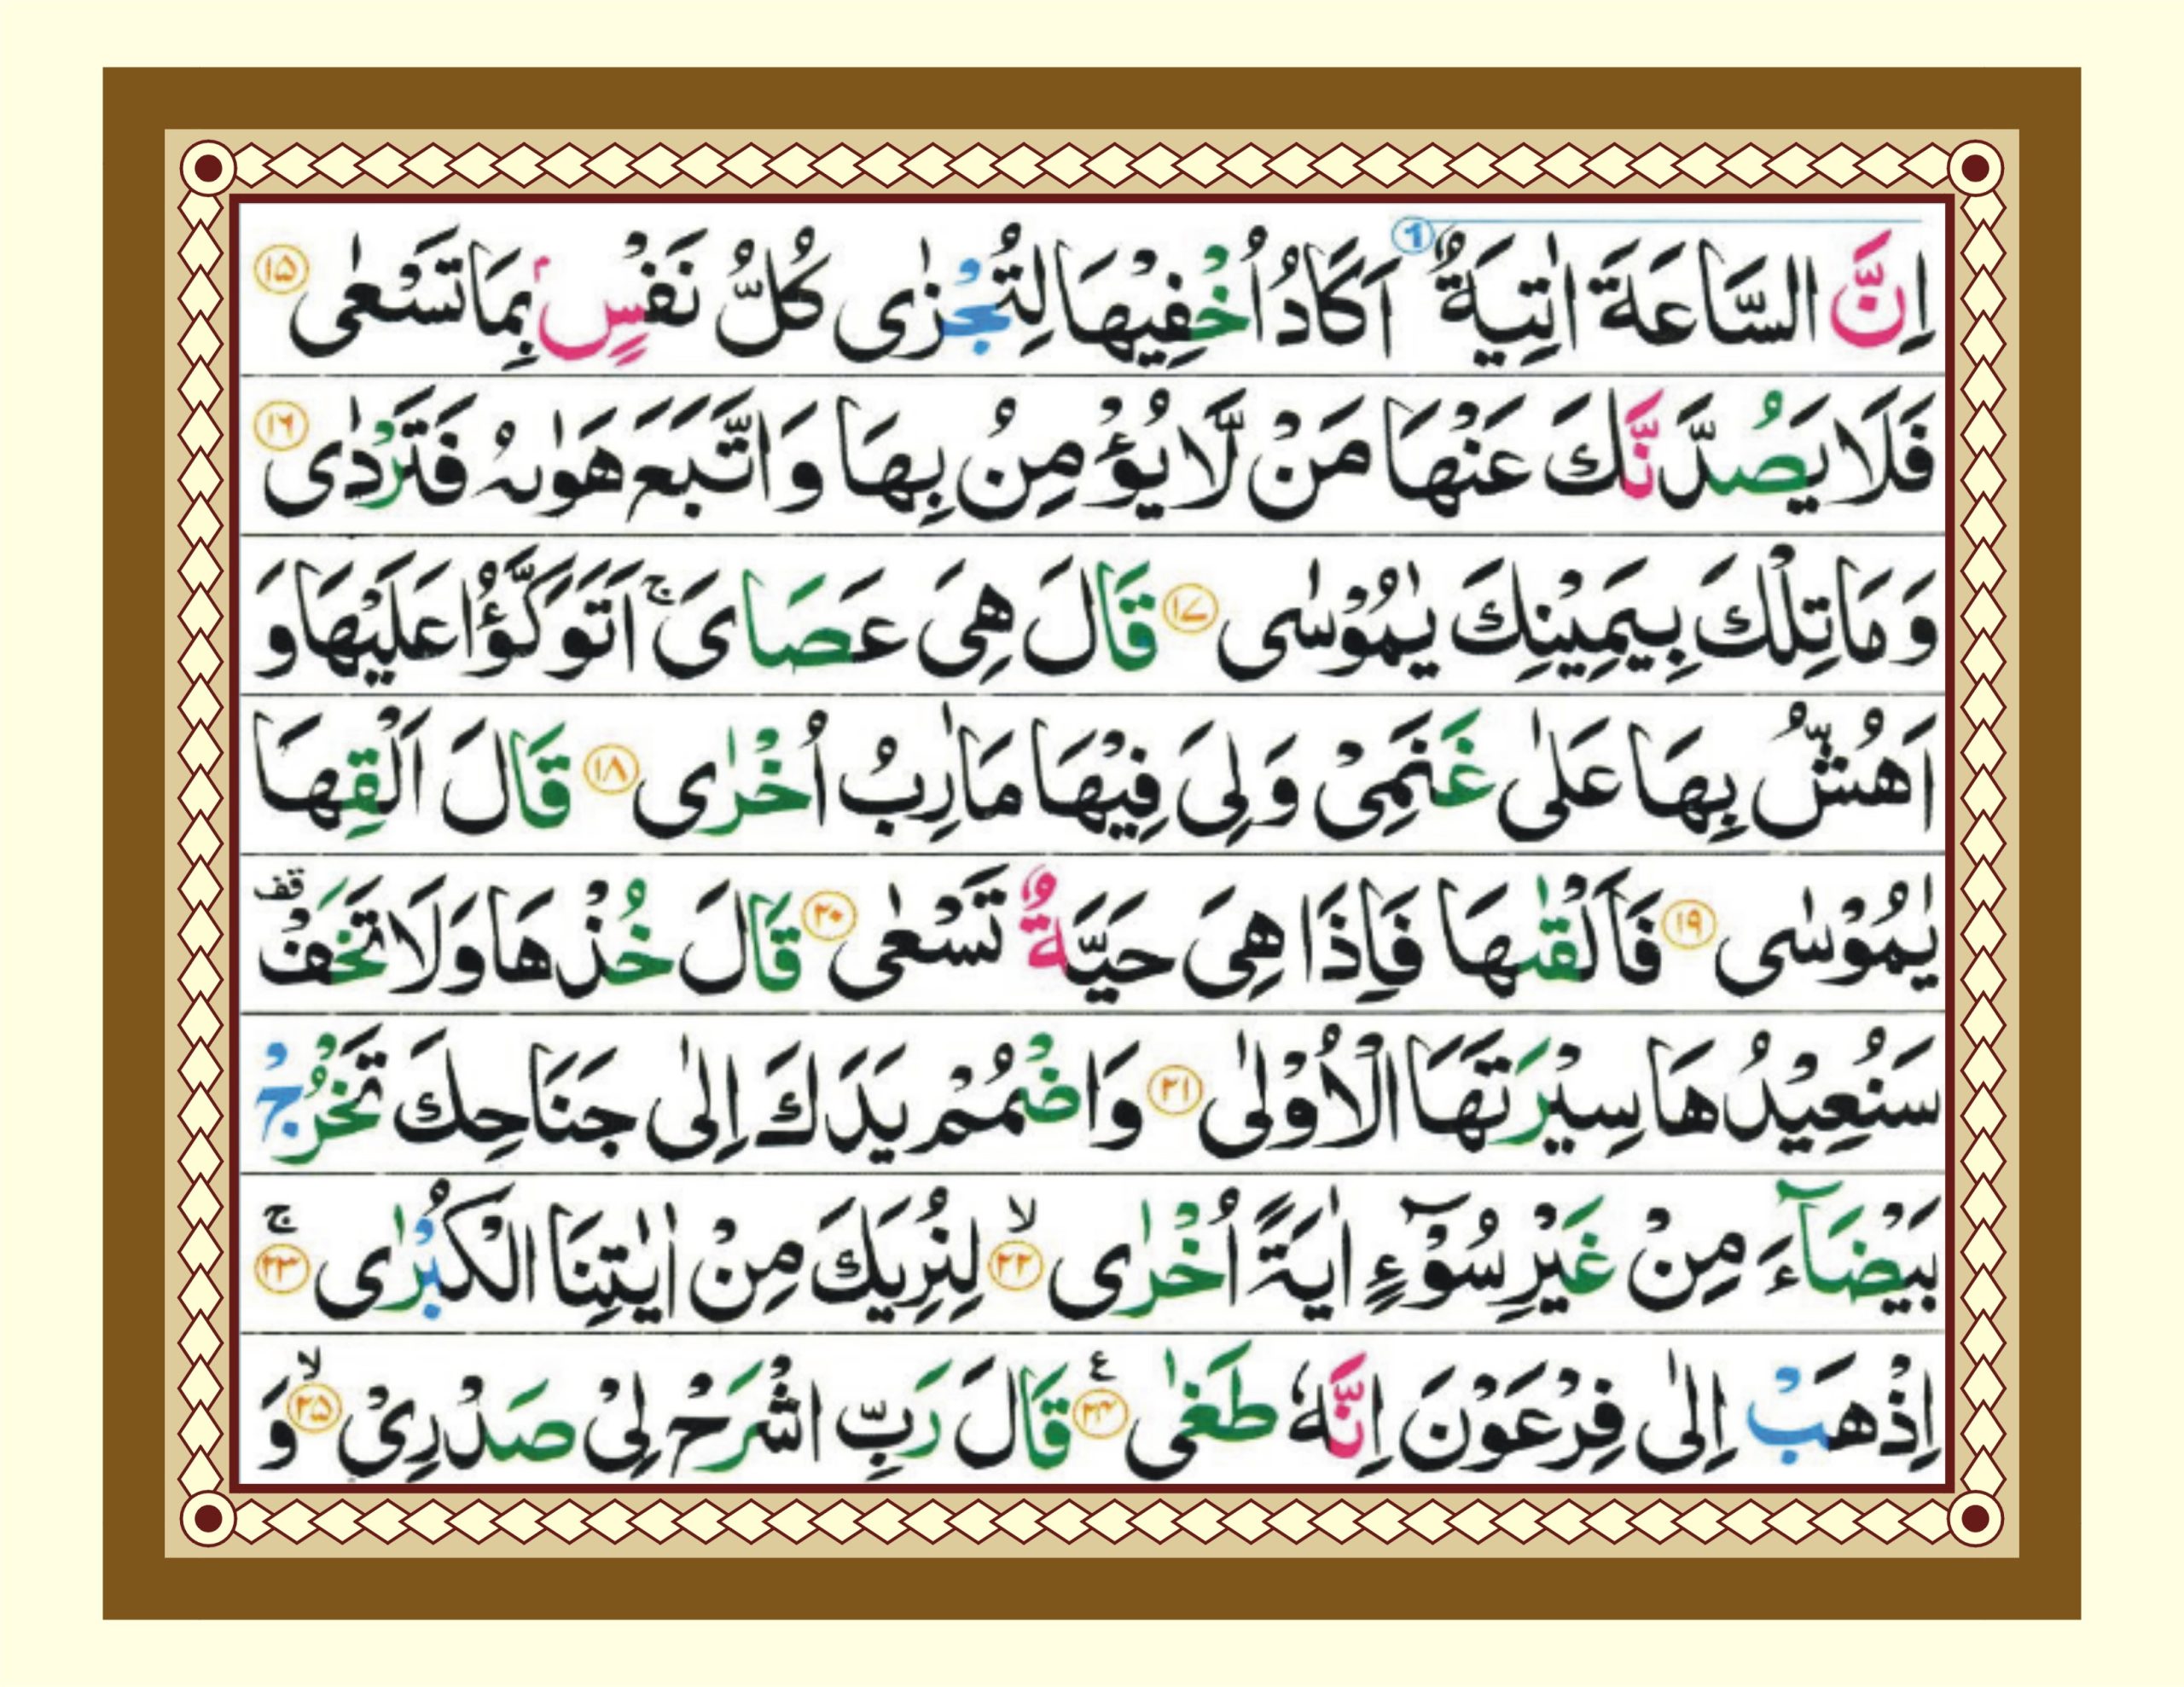 اِنَّ السَّاعَةَ اٰتِيَةٌ ۱ اَكَادُ اُخْفِيْهَا لِتُجْزٰى كُلُّ نَفْسٍۭ بِمَا تَسْعٰى ۱۵
فَلَا يَصُدَّنَّكَ عَنْهَا مَنْ لَّا يُؤْمِنُ بِهَا وَاتَّبَعَ هَوٰىهُ فَتَرْدٰى ۱۶
وَمَا تِلْكَ بِيَمِيْنِكَ يٰمُوْسٰى ۱۷ قَالَ هِىَ عَصَاىَ ۚ اَتَوَكَّؤُا عَلَيْهَا وَ
اَهُشُّ بِهَا عَلٰى غَنَمِىْ وَلِىَ فِيْهَا مَاٰرِبُ اُخْرٰى ۱۸ قَالَ اَلْقِهَا
يٰمُوْسٰى ۱۹ فَاَلْقٰىهَا فَاِذَا هِىَ حَيَّةٌ تَسْعٰى ۲۰ قَالَ خُذْهَا وَلَا تَخَفْ قف
سَنُعِيْدُهَا سِيْرَتَهَا الْاُوْلٰى ۲۱ وَاضْمُمْ يَدَكَ اِلٰى جَنَاحِكَ تَخْرُجْ
بَيْضَآءَ مِنْ غَيْرِ سُوْٓءٍ اٰيَةً اُخْرٰى ۙ ۲۲ لِنُرِيَكَ مِنْ اٰيٰتِنَا الْكُبْرٰى ۚ ۲۳
اِذْهَبْ اِلٰى فِرْعَوْنَ اِنَّهٗ طَغٰى ۲۴ ع قَالَ رَبِّ اشْرَحْ لِىْ صَدْرِىْ ۙ ۲۵ وَ